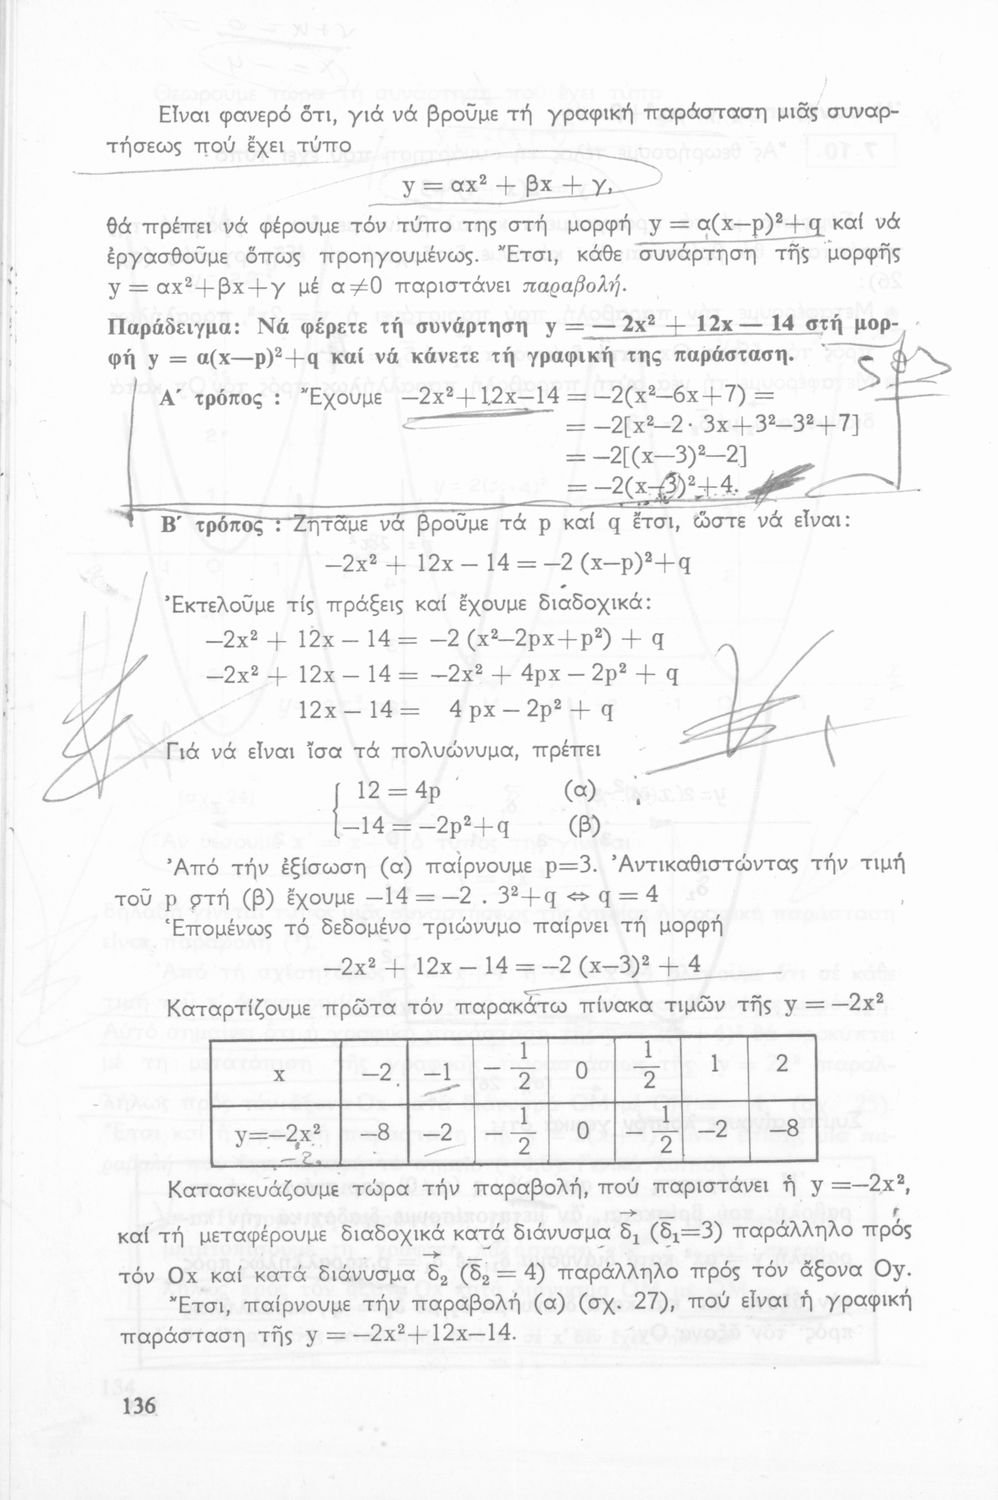 Εἶναι φανερό ὅτι, γιά νά βροῦμε τή γραφική παράσταση μιᾶς συναρ-
τήσεως πού ἔχει τύπο
y = αx² + βx + γ,
θά πρέπει νά φέρουμε τόν τύπο της στή μορφή y = α(x—p)²+q καί νά
ἐργασθοῦμε ὅπως προηγουμένως. Ἔτσι, κάθε συνάρτηση τῆς μορφῆς
y = αx²+βx+γ μέ α≠0 παριστάνει παραβολή.
Παράδειγμα: Νά φέρετε τή συνάρτηση y = — 2x² + 12x — 14 στή μορ-
φή y = α(x—p)²+q καί νά κάνετε τή γραφική της παράσταση.
Α′ τρόπος : Ἔχουμε —2x²+12x—14 = —2(x²—6x+7) =
= —2[x²—2· 3x+3²—3²+7]
= —2[(x—3)²—2]
= —2(x—3)²+4.
Β′ τρόπος : Ζητᾶμε νά βροῦμε τά p καί q ἔτσι, ὥστε νά εἶναι:
—2x² + 12x — 14 = —2 (x—p)²+q
Ἐκτελοῦμε τίς πράξεις καί ἔχουμε διαδοχικά:
—2x² + 12x — 14 = —2 (x²—2px+p²) + q
—2x² + 12x — 14 = —2x² + 4px — 2p² + q
12x — 14 = 4 px — 2p² + q
Γιά νά εἶναι ἴσα τά πολυώνυμα, πρέπει
12 = 4p (α)
—14 = —2p²+q (β)
Ἀπό τήν ἐξίσωση (α) παίρνουμε p=3. Ἀντικαθιστώντας τήν τιμή
τοῦ p στή (β) ἔχουμε —14 = —2 . 3²+q ⇔ q = 4
Ἑπομένως τό δεδομένο τριώνυμο παίρνει τή μορφή
—2x² + 12x — 14 = —2 (x—3)² + 4
Καταρτίζουμε πρῶτα τόν παρακάτω πίνακα τιμῶν τῆς y = —2x²
x —2 —1 — 1/2 0 1/2 1 2
y=—2x² —8 —2 — 1/2 0 — 1/2 —2 —8
Κατασκευάζουμε τώρα τήν παραβολή, πού παριστάνει ἡ y =—2x²,
καί τή μεταφέρουμε διαδοχικά κατά διάνυσμα δ⃗₁ (δ̅₁=3) παράλληλο πρός
τόν Ox καί κατά διάνυσμα δ⃗₂ (δ̅₂ = 4) παράλληλο πρός τόν ἄξονα Oy.
Ἔτσι, παίρνουμε τήν παραβολή (α) (σχ. 27), πού εἶναι ἡ γραφική
παράσταση τῆς y = —2x²+12x—14.
136